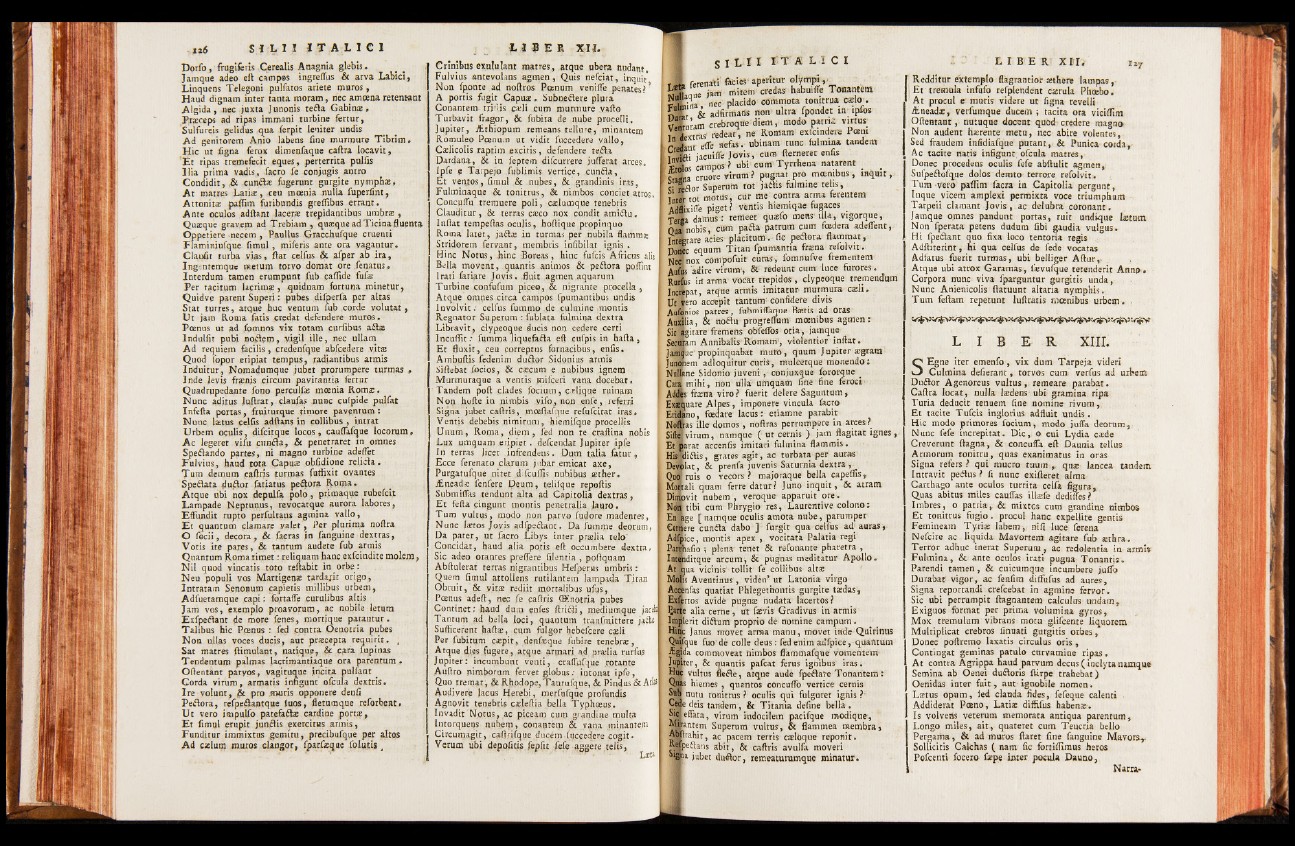 126 SILII ITALICI
Dorſo, frugiferis Cerealis Anagnia glebis.
Jamque adeo eſt campos ingreſſus & arva Labici,
Linquens Telegoni pulſatos ariete muros,
Haud dignam inter tanta moram, nec amœna retentant
Algida, nec juxta Junonis tecta Gabinæ,
Præceps ad ripas immani turbine fertur,
Sulfureis gelidus qua ſerpit leniter undis
Ad genitorem Anio labens ſine murmure Tibrim.
Hic ut ſigna ferox dimenſaque caſtra locavit,
Et ripas tremefecit eques, perterrita pulſis
Ilia prima vadis, ſacro ſe conjugis antro
Condidit, & cunctæ fugerunt gurgite nymphæ.
At matres Latiæ, ceu mœnia nulla ſuperſint,
Attonitæ paſſim furibundis greſſibus errant.
Ante oculos adſtant laceræ trepidantibus umbræ,
Quæque gravem ad Trebiam, quæque ad Ticina fluenta
Oppetiere necem, Paullus Gracchuſque cruenti
Flaminiuſque ſimul, miſeris ante ora vagantur.
Clauſit turba vias, ſtat celſus & aſper ab ira,
Ingentemque metum torvo domat ore ſenatus.
Interdum tamen erumpunt ſub caſſide fuſæ
Per tacitum lacrimæ, quidnam fortuna minetur,
Quidve parent Superi: pubes diſperſa per altas
Stat turres, atque huc ventum ſub corde volutat,
Ut jam Roma ſatis credat defendere muros.
Pœnus ut ad ſomnos vix totam curſibus actæ
Indulſit pubi noctem, vigil ille, nec ullam
Ad requiem facilis, credenſque abſcedere vitæ
Quod ſopor eripiat tempus, radiantibus armis
Induitur, Nomadumque jubet prorumpere turmas,
Inde levis frænis circum pavitantia fertur
Quadrupedante ſono perculſæ mœnia Romæ.
Nunc aditus luſtrat, clauſas nunc cuſpide pulſat
Infeſta portas, fruiturque timore paventum:
Nunc lætus celſis adſtans in collibus, intrat
Urbem oculis, diſcitque locos, cauſſaſque locorum.
Ac legeret viſu cuncta, & penetraret in omnes
Spectando partes, ni magno turbine adeſſet
Fulvius, haud tota Capuæ obſidione relicta.
Tum demum caſtris turmas ſuffixit ovantes
Spectata ductor ſatiatus pectora Roma.
Atque ubi nox depulſa polo, primaque rubeſcit
Lampade Neptunus, revocatque aurora labores,
Effundit rupto perfultans agmina vallo,
Et quantum clamare valet, Per plurima noſtra
O ſocii, decora, & ſacras in ſanguine dextras,
Votis ite pares, & tantum audete ſub armis
Quantum Roma timet: reliquam hanc exſcindite molem,
Nil quod vincatis toto reſtabit in orbe:
Neu populi vos Martigenæ tardarit origo,
Intratam Senonum capietis millibus urbem,
Adſuetamque capi: fortaſſe curulibus altis
Jam vos, exemplo proavorum, ac nobile letum
Exſpectant de more ſenes, mortique parantur.
Talibus hic Pœnus: ſed contra Oenotria pubes
Non ullas voces ducis, aut præcepta requirit.
Sat matres ſtimulant, natique, & cara ſupinas
Tendentum palmas lacrimantiaque ora parentum.
Oſtentant parvos, vagituque incita pulſant
Corda virum, armatis infigunt oſcula dextris.
Ire volunt, & pro muris opponere denſi
Pectora, reſpectantque ſuos, fletumque reſorbent.
Ut vero impulſo patefactæ cardine portæ,
Et ſimul erupit junctis exercitus armis,
Funditur immixtus gemitu, precibuſque per altos
Ad cælum muros clangor, ſparſæque ſolutis
LIBER XII.
Crinibus exululant matres, atque ubera nudant.
Fulvius antevolans agmen, Quis neſciat, inquit,
Non ſponte ad noſtros Pœnum veniſſe penates?
A portis fugit Capuæ. Subnectere plura
Conantem triſtis cæli cum murmure vaſto
Turbavit fragor, & ſubita de nube procelli.
Jupiter, Æthiopum remeans tellure, minantem
Romuleo Pœnum ut vidit ſuccedere vallo,
Cælicolis raptim excitis, defendere tecta
Dardana, & in ſeptem diſcurrere juſſerat arces.
Ipſe e Tarpejo ſublimis vertice, cuncta,
Et ventos, ſimul & nubes, & grandinis iras,
Fulminaque & tonitrus, & nimbos conciet atros.
Concuſſu tremuere poli, cælumque tenebris
Clauditur, & terras cæco nox condit amictu.
Inſtat tempeſtas oculis, hoſtique propinquo
Roma latet, jactæ in turmas per nubila flammæ
Stridorem ſervant, membris inſibilat ignis.
Hinc Notus, hinc Boreas, hinc fuſcis Africus alis
Bella movent, quantis animos & pectora poſſint
Irati ſatiare Jovis. fluit agmen aquarum
Turbine confuſum piceo, & nigrante procella,
Atque omnes circa campos ſpumantibus undis
Involvit. celſus ſummo de culmine montis
Regnator Superum: ſublata fulmina dextra
Libravit, clypeoque ducis non cedere certi
Incuſſit: ſumma liquefacta eſt cuſpis in haſta,
Et fluxit, ceu correptus fornacibus, enſis.
Ambuſtis ſedenim ductor Sidonius armis
Siſtebat ſocios, & cæcum e nubibus ignem
Murmuraque a ventis miſceri vana docebat.
Tandem poſt clades ſocium, cælique ruinam
Non hoſte in nimbis viſo, non enſe, referri
Signa jubet caſtris, mœſtaſque reſuſcitat iras.
Ventis debebis nimirum, hiemiſque procellis
Unum, Roma, diem, ſed non te craſtina nobis
Lux umquam eripiet. deſcendat Jupiter ipſe
In terras licet infcendens. Dum talia fatur,
Ecce ſerenato clarum jubar emicat axe,
Purgatuſque nitet diſcuſſis nubibus æther.
Æneadæ ſenſere Deum, teliſque repoſtis
Submiſſas tendunt alta ad Capitolia dextras,
Et feſta cingunt montis penetralia lauro.
Tum vultus, modo non parvo ſudore madentes,
Nunc lætos Jovis adſpectant. Da ſumme deorum,
Da pater, ut ſacro Libys inter prælia telo
Concidat, haud alia potis eſt occumbere dextra.
Sic adeo orantes preſſere ſilentia, poſtquam
Abſtulerat terras nigrantibus Heſperus umbris:
Quem ſimul attollens rutilantem lampada Titan
Obruit, & vitæ rediit mortalibus uſus,
Pœnus adeſt, nec ſe caſtris Œnotria pubes
Continet: haud dum enſes ſtricti, mediumque jacebat
Tantum ad bella loci, quantum tranſmittere jactæ
Sufficerent haſtæ, cum fulgor hebeſcere cæli
Per ſubitum cæpit, denſæque ſubire tenebræ,
Atque dies fugere, atque armari ad prælia rurſus
Jupiter: incumbunt venti, craſſuſque rotante
Auſtro nimborum fervet globus: intonat ipſe,
Quo tremat, & Rhodope, Tauruſque, & Pindus & Atlas
Audivere lacus Herebi, merſuſque profundis
Agnovit tenebris cæleſtia bella Typhœus.
Invadit Notus, ac piceam cum grandine multa
Intorquens nubem, conantem & vana minantem
Circumagit, caſtriſque ducem ſuccedere cogit.
Verum ubi depoſitis ſepſit ſeſe aggere telis,
Læta
SILII ITALICI
Læta ſerenati facies aperitur olympi,
jam mitem credas habuiſſe Tonantem
nec placido commota tonitrua cælo.
Durat, & adfirmans non ultra ſpondet in ipſos
Venturam crebroque diem, modo patriæ virtus
In dextras redeat, ne Romam exſcindere Pœni
Credant eſſe nefas. ubinam tunc fulmina tandem
Invicti jacuiſſe Jovis, cum ſterneret enſis
campos? ubi cum Tyrrhena natarent
Stagna cruore virum? pugnat pro mœnibus, inquit,
Si rector Superum tot jactis fulmine telis,
Inter tot motus, cur me contra arma ferentem
Adflixiſſe piget? ventis hiemique fugaces
Terga damus: remeet quæſo mens illa, vigorque,
Qua nobis, cum pacta patrum cum fœdera adeſſent,
Integrare acies placitum. ſic pectora flammat,
Donec equum Titan ſpumantia fræna reſolvit.
Nec nox compoſuit curas, ſomnuſve frementem
Auſus adire virum, & redeunt cum luce furores.
Rurſus in arma vocat trepidos, clypeoque tremendum
Increpat, atque armis imitatur murmura cæli.
Ut vero accepit tantum confidere divis
Auſonios patres, ſubmiſſaque Bætis ad oras
Auxilia, & noctu progreſſum mœnibus agmen:
Sic agitare fremens obſeſſos otia, jamque
Securam Annibalis Romam, violentior inſtat.
Jamque propinquabat muro, quum Jupiter ægram
Junonem adloquitur curis, mulcetque monendo:
Nullane Sidonio juveni, conjuxque ſororque
Cara mihi, non ulla umquam ſine fine feroci
Addes fræna viro? fuerit delere Saguntum,
Exæquare Alpes, imponere vincula ſacro
Eridano, fœdare lacus: etiamne parabit
Noſtras ille domos, noſtras perrumpere in arces?
Siſte virum, namque (ut cernis) jam flagitat ignes,
Et parat accenſis imitari fulmina flammis.
His dictis, grates agit, ac turbata per auras
Devolat, & prenſa juvenis Saturnia dextra,
Quo ruis o vecors? majoraque bella capeſſis,
Mortali quam ferre datur? Juno inquit, & atram
Dimovit nubem, veroque apparuit ore.
Non tibi cum Phrygio res, Laurentive colono:
En age [namque oculis amota nube, parumper
Cernere cuncta dabo] ſurgit qua celſus ad auras,
Adſpice, montis apex, vocitata Palatia regi
Parrhaſio, plena tenet & reſonante pharetra,
Intenditque arcum, & pugnas meditatur Apollo.
At qua vicinis tollit ſe collibus altæ
Molis Aventinus, viden' ut Latonia virgo
Accenſas quatiat Phlegethontis gurgite tædas,
Exſertos avide pugnæ nudata lacertos?
Parte alia cerne, ut ſævis Gradivus in armis
Implerit dictum proprio de nomine campum.
Hinc Janus movet arma manu, movet inde Quirinus
Quiſque ſuo de colle deus: ſed enim adſpice, quantum
Ægida commoveat nimbos flammaſque vomentem
Jupiter, & quantis paſcat ferus ignibus iras.
Huc vultus flecte, atque aude ſpectare Tonantem:
Quas hiemes, quantos concuſſo vertice cernis
Sub nutu tonitrus? oculis qui fulguret ignis?
Cede deis tandem, & Titania deſine bella.
Sic effata, virum indocilem paciſque modique,
Mirantem Superum vultus, & flammea membra,
Abſtrahit, ac pacem terris cæloque reponit.
Reſpectans abit, & caſtris avulſa moveri
Signa jubet ductor, remeaturumque minatur.
LIBER XII. 127
Redditur extemplo flagrantior æthere lampas,
Et tremula infuſo reſplendent cærula Phœbo.
At procul e muris videre ut ſigna revelli
Æneadæ, verſumque ducem; tacita ora viciſſim
Oſtentant, nutuque docent quod credere magno
Non audent hærente metu, nec abire volentes,
Sed fraudem inſidiaſque putant, & Punica corda,
Ac tacite natis infigunt oſcula matres,
Donec procedens oculis ſeſe abſtulit agmen,
Suſpectoſque dolos demto terrore reſolvit.
Tum vero paſſim ſacra in Capitolia pergunt,
Inque vicem amplexi permixta voce triumphum
Tarpeii clamant Jovis, ac delubra coronant.
Jamque omnes pandunt portas, ruit undique lætum
Non ſperata petens dudum ſibi gaudia vulgus.
Hi ſpectant quo fixa loco tentoria regis
Adſtiterint, hi qua celſus de ſede vocatas
Adfatus fuerit turmas, ubi belliger Aſtur,
Atque ubi atrox Garamas, ſævuſque tetenderit Annon.
Corpora nunc viva ſparguntur gurgitis unda,
Nunc Anienicolis ſtatuunt altaria nymphis.
Tum feſtam repetunt luſtratis mœnibus urbem.
LIBER XIII.
SEgne iter emenſo, vix dum Tarpeja videri
Culmina deſierant, torvos cum verſus ad urbem
Ductor Agenoreus vultus, remeare parabat.
Caſtra locat, nulla lædens ubi gramina ripa
Turia deducit tenuem ſine nomine rivum,
Et tacite Tuſcis inglorius adfluit undis.
Hic modo primores ſocium, modo juſſa deorum,
Nunc ſeſe increpitat. Dic, o cui Lydia cæde
Creverunt ſtagna, & concuſſa eſt Daunia tellus
Armorum tonitru, quas exanimatus in oras
Signa refers? qui mucro tuum, quæ lancea tandem
Intravit pectus? ſi nunc exſiſteret alma
Carthago ante oculos turrita celſa figura,
Quas abitus miles cauſſas illæſe dediſſes?
Imbres, o patria, & mixtos cum grandine nimbos
Et tonitrus fugio. procul hanc expellite gentis
Femineam Tyriæ labem, niſi luce ſerena
Neſcire ac liquida Mavortem agitare ſub æthra.
Terror adhuc inerat Superum, ac redolentia in armis
Fulmina, & ante oculos irati pugna Tonantis.
Parendi tamen, & cuicumque incumbere juſſo
Durabat vigor, ac ſenſim diffuſus ad aures,
Signa reportandi creſcebat in agmine fervor.
Sic ubi perrumpit ſtagnantem calculus undam,
Exiguos format per prima volumina gyros,
Mox tremulum vibrans motu gliſcente liquorem
Multiplicat crebros ſinuati gurgitis orbes,
Donec poſtremo laxatis circulus oris,
Contingat geminas patulo curvamine ripas.
At contra Agrippa haud parvum decus (inclyta namque
Semina ab Oenei ductoris ſtirpe trahebat)
Oenidas inter fuit, aut ignobile nomen.
Lærus opum, ſed clanda fides, ſeſeque calenti
Addiderat Pœno, Latiæ diffiſus habenæ.
Is volvens veterum memorata antiqua parentum,
Longo miles, ait, quateret cum Teucria bello
Pergama, & ad muros ſtaret ſine ſanguine Mavors,
Sollicitis Calchas (nam ſic fortiſſimus heros
Poſcenti ſocero ſæpe inter pocula Dauno,
Narra-